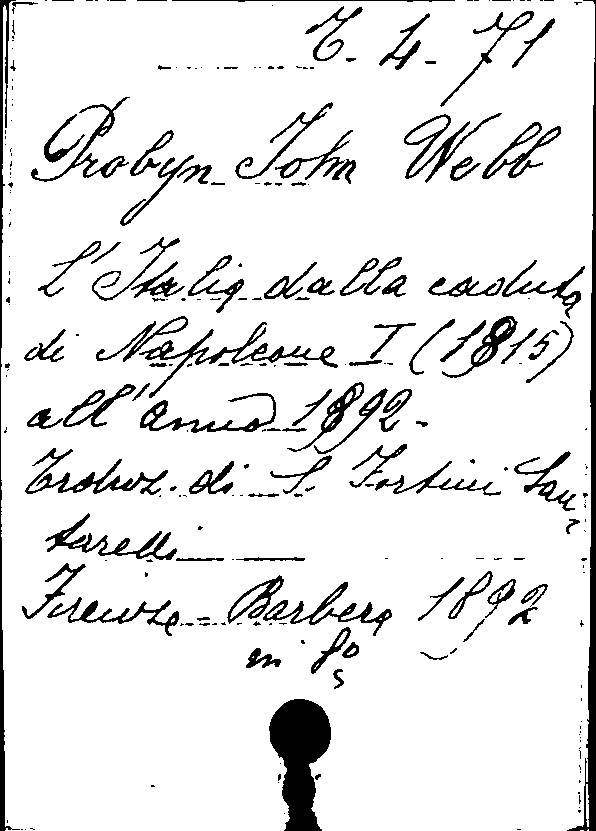 T. 4. 71
Probyn John Webb
L'Italia dalla caduta
di Napoleone I (1815)
all'anno 1892.
Traduz. di S. Fortini San-
tarelli
Firenze - Barbera 1892
in 8º